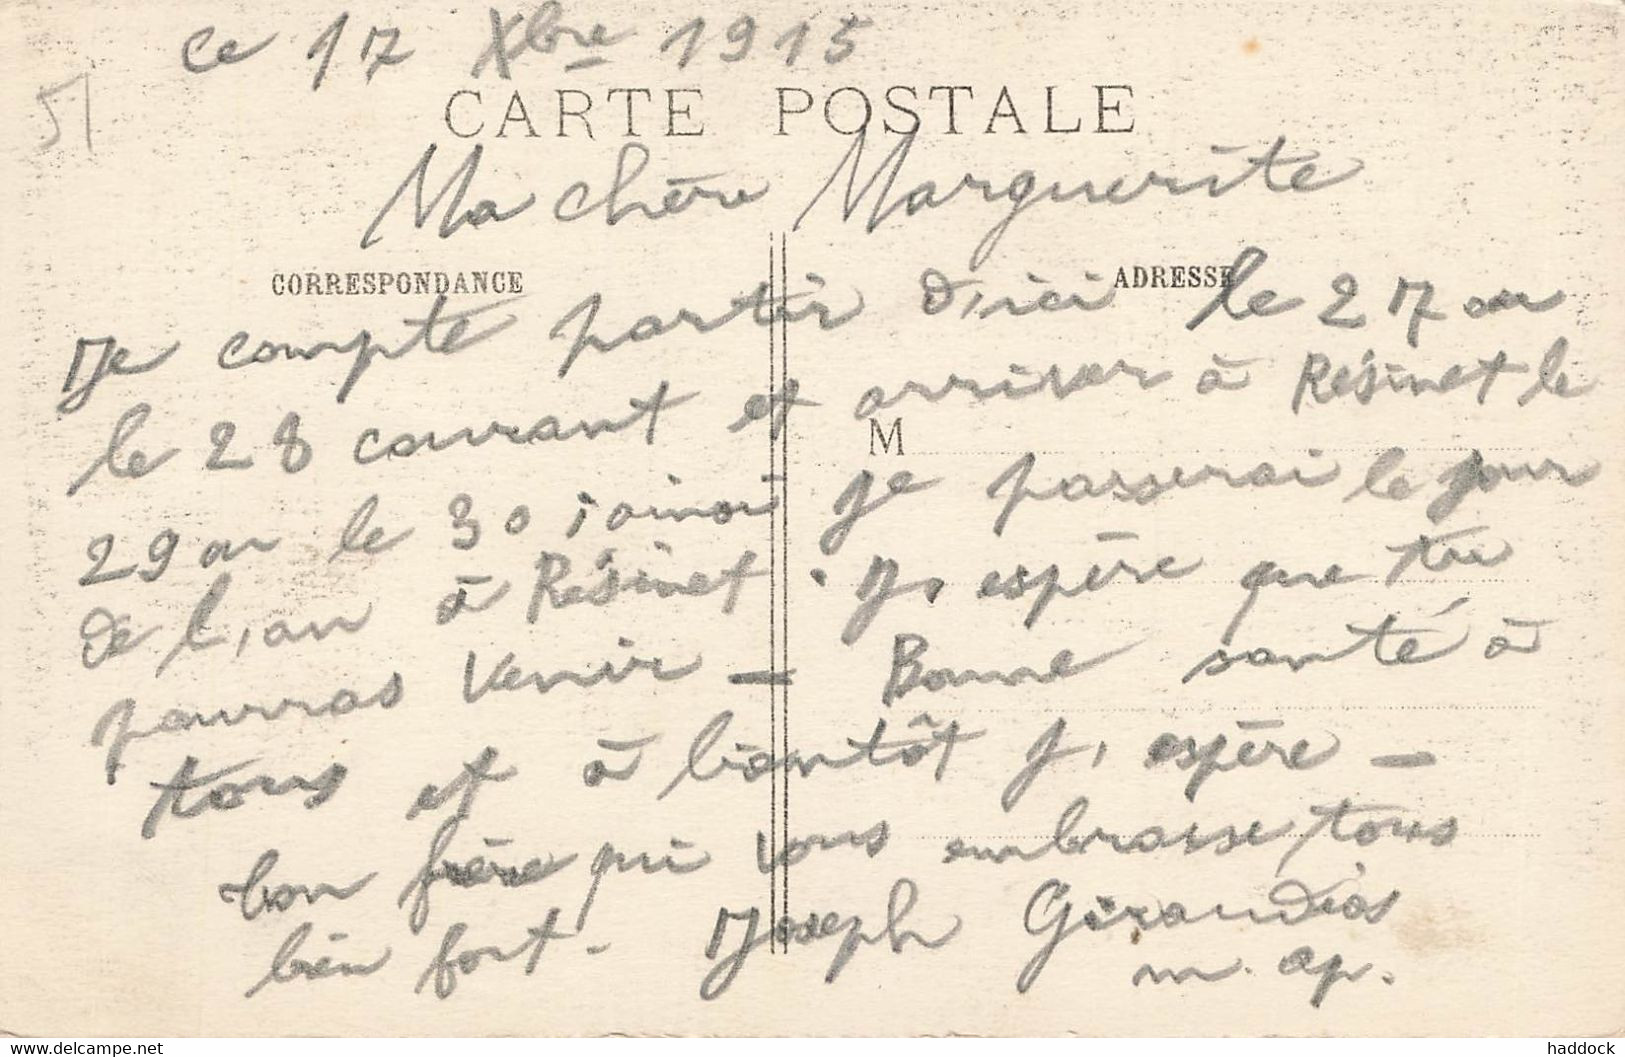 ce 17 Xbre 1915
51
CARTE POSTALE
Ma chère Marguerite
CORRESPONDANCE
ADRESSE
Je compte partir d'ici le 27 ou
le 28 courant et arriver à Résinet le
M
29 ou le 30 ainsi je passerai le jour
de l'an à Résinet. J'espère que tu
pourras venir - Bonne santé à
tous et à bientôt j'espère -
ton frère qui vous embrasse tous
bien fort. Joseph
m. ap.
www.delcampe.net
haddock